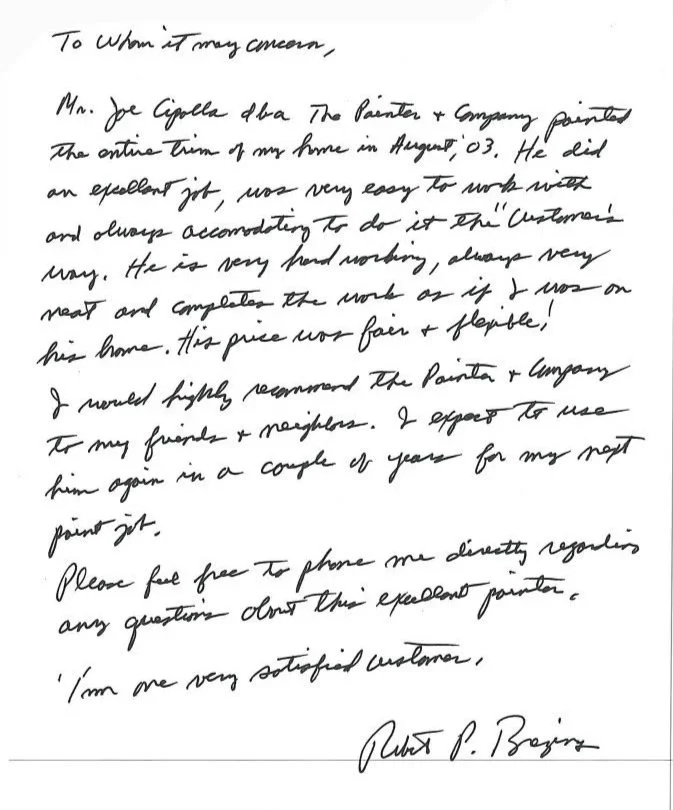 To Whom it may concern,
Mr. Joe Cipolla dba The Painter + Company painted
the entire trim of my home in August, '03. He did
an excellent job, was very easy to work with
and always accomodating to do it the "Customer's
way. He is very hard working, always very
neat and completes the work as if I was on
his home. His price was fair + flexible!
I would highly recommend the Painter + Company
to my friends + neighbors. I expect to use
him again in a couple of years for my next
paint job.
Please feel free to phone me directly regarding
any questions about this excellent painter.
'I'm one very satisfied customer.
Robert P.